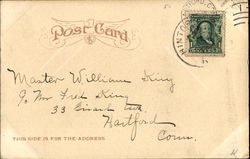 Post Card
Master William King
℅ Mr Fred King
33
Hartford
Conn.
THIS SIDE IS FOR THE ADDRESS.